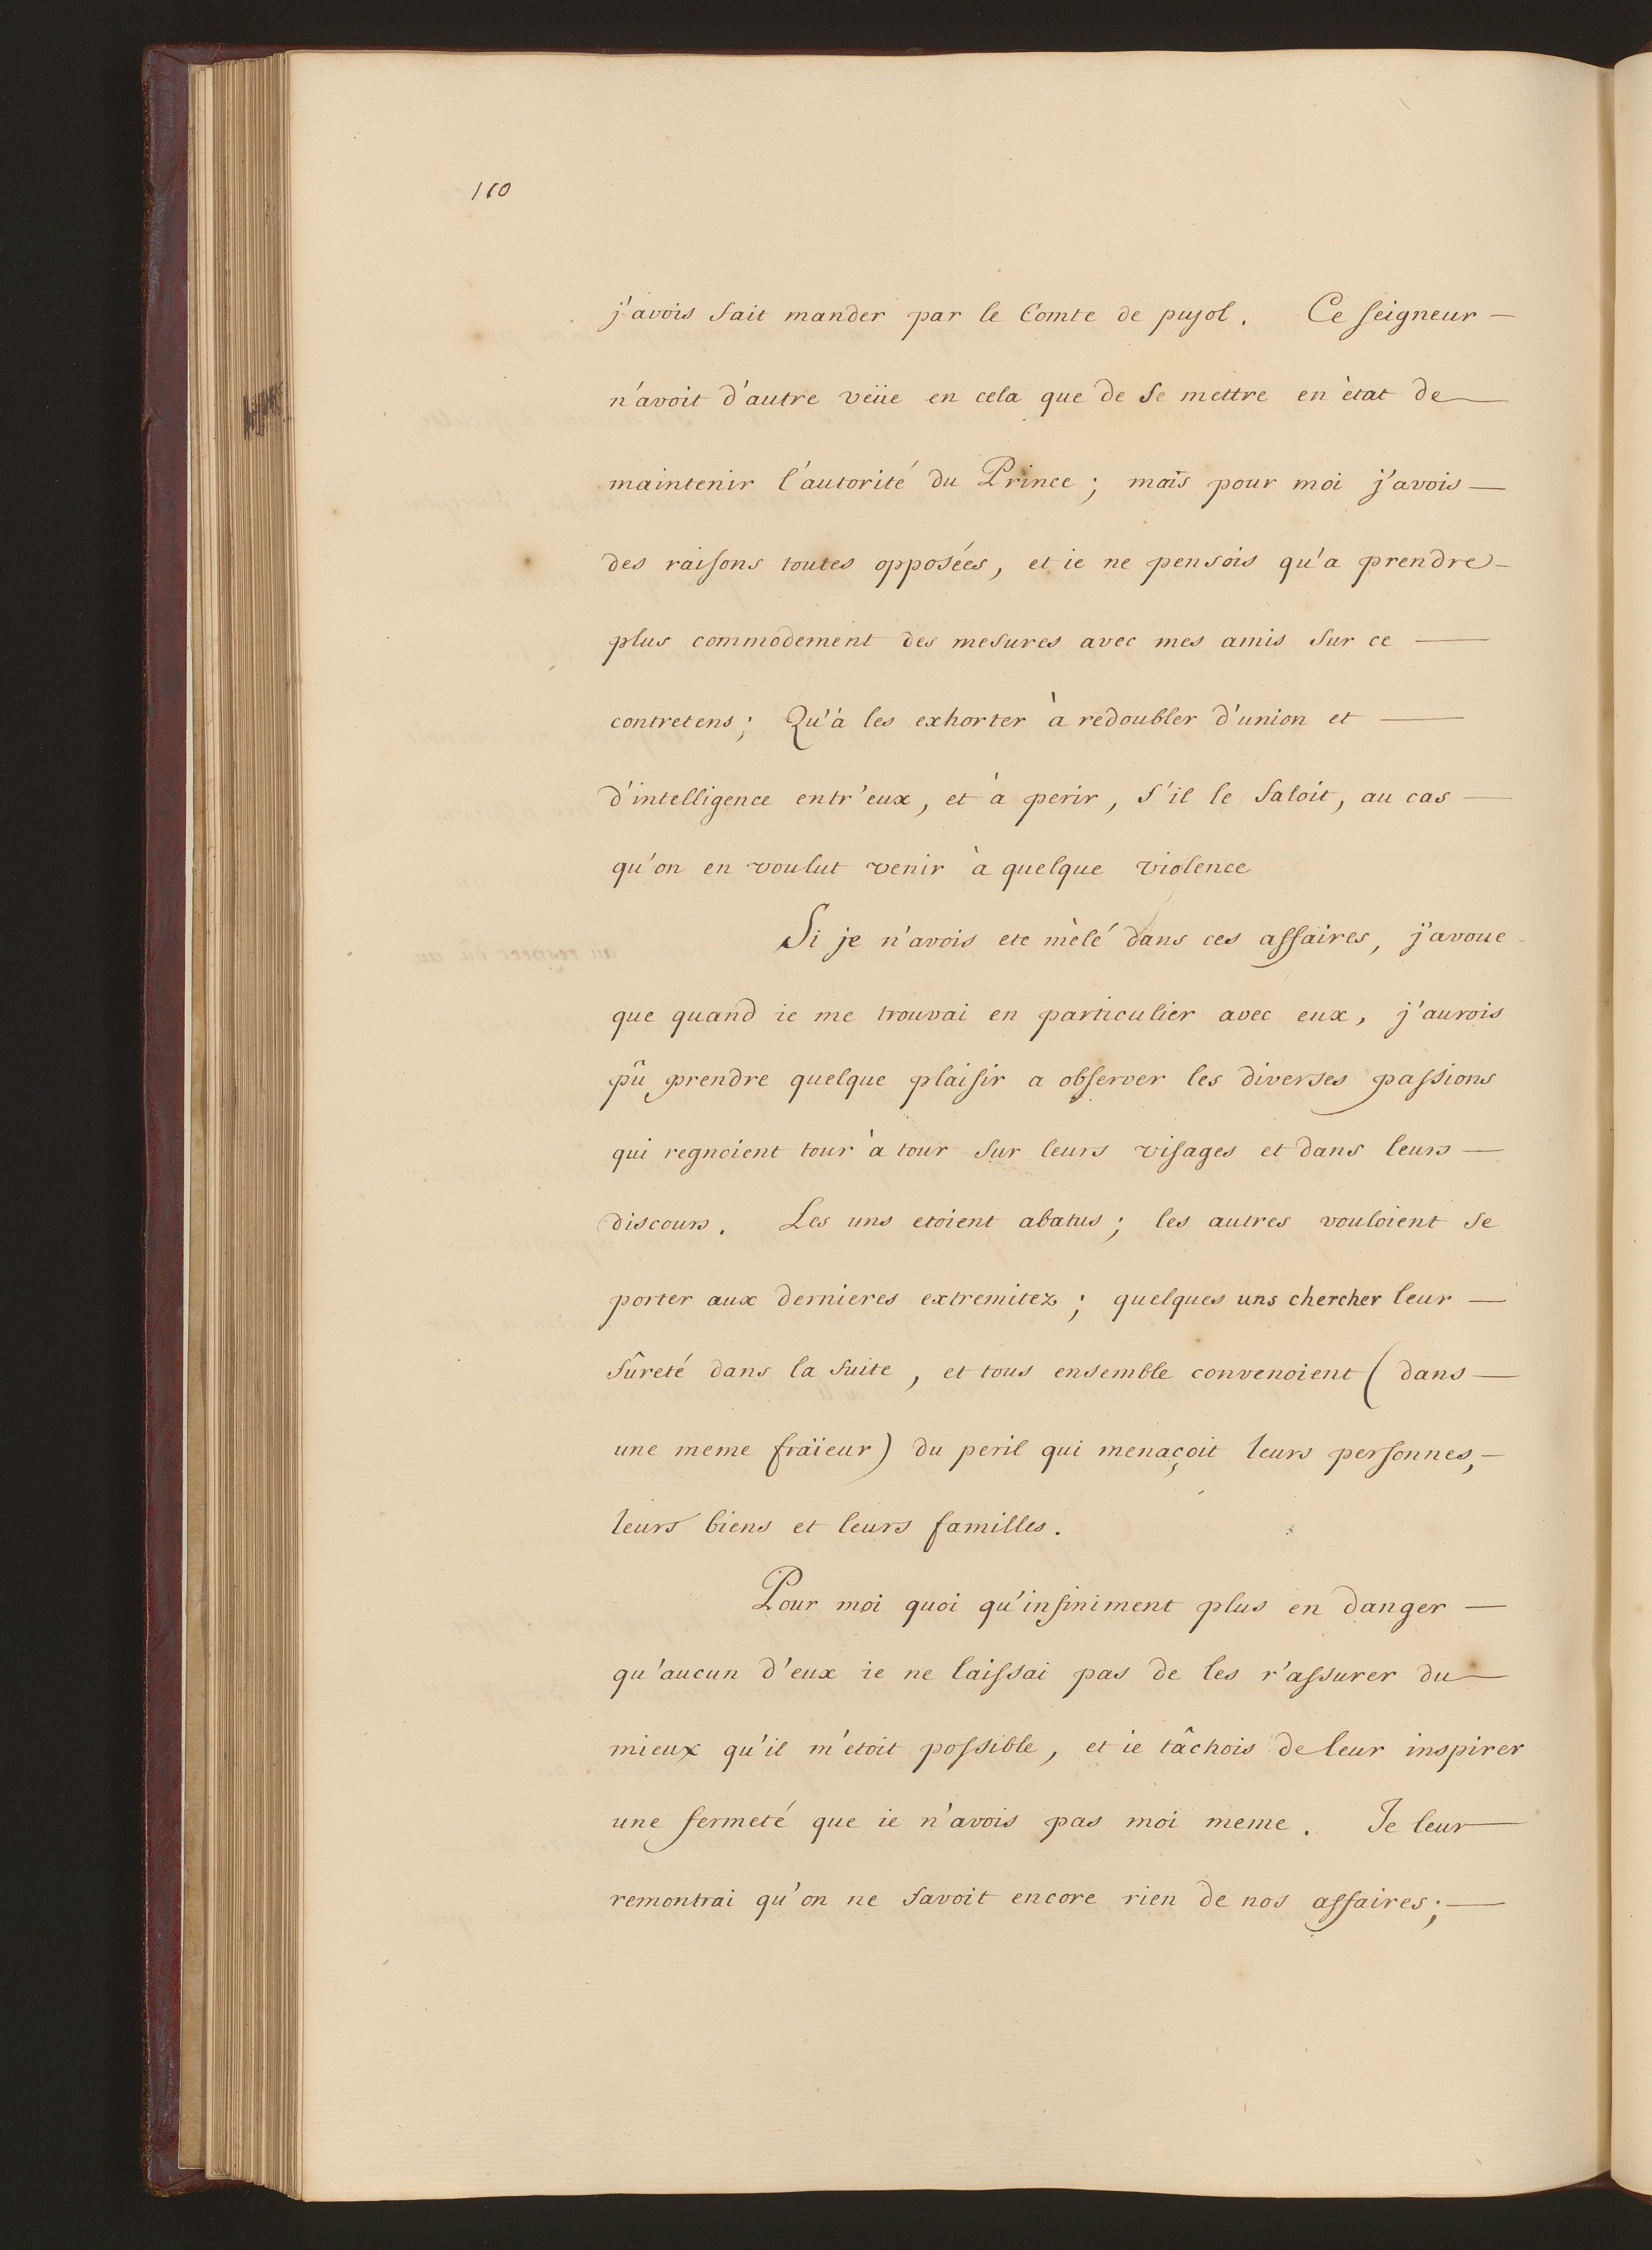 110
j'avois fait mander par le Comte de pujol. Ce seigneur —
n'avoit d'autre veüe en cela que de se mettre en ètat de —
maintenir l'autorité du Prince; mais pour moi j'avois —
des raisons toutes opposées, et ie ne pensois qu'a prendre —
plus commodement des mesures avec mes amis sur ce —
contretens; Qu'à les exhorter à redoubler d'union et —
d'intelligence entr'eux, et à perir, s'il le faloit, au cas —
qu'on en voulut venir à quelque violence
Si je n'avois ete mèlé dans ces affaires, j'avoue -
que quand ie me trouvai en particulier avec eux, j'aurois
pû prendre quelque plaisir a observer les diverses passions
qui regnoient tour à tour sur leurs visages et dans leurs —
discours. Les uns etoient abatus; les autres vouloient se
porter aux dernieres extremitez; quelques uns chercher leur —
sûreté dans la suite, et tous ensemble convenoient ( dans —
une meme fraïeur) du peril qui menaçoit leurs personnes, —
leurs biens et leurs familles.
Pour moi quoi qu'infiniment plus en danger —
qu'aucun d'eux ie ne laissai pas de les r'assurer du —
mieux qu'il m'etoit possible, et ie tâchois de leur inspirer
une fermeté que ie n'avois pas moi meme. Je leur —
remontrai qu'on ne savoit encore rien de nos affaires; —